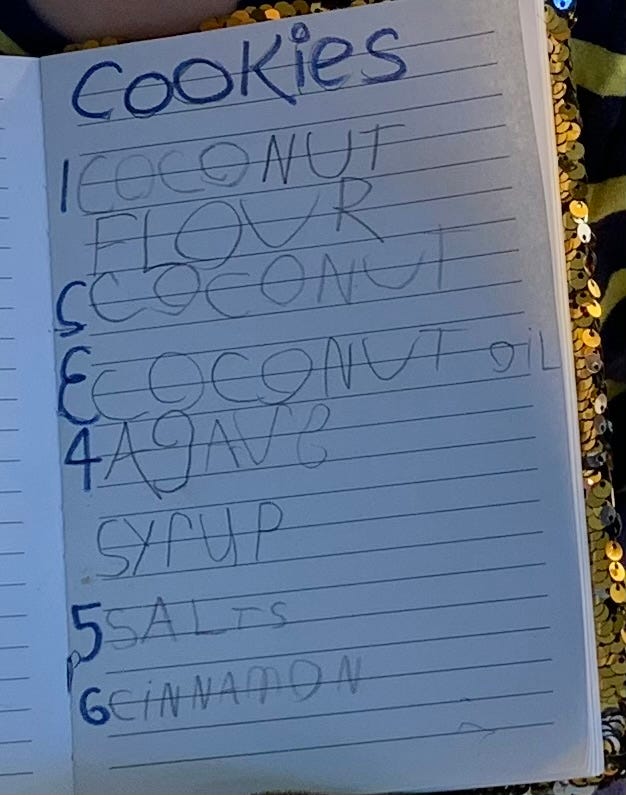 COOKies
1 COCONUT
FLOUR
2 COCONUT
3 COCONUT OiL
4 AgAVE
SYrUP
5 SALTS
6 CiNNAMON